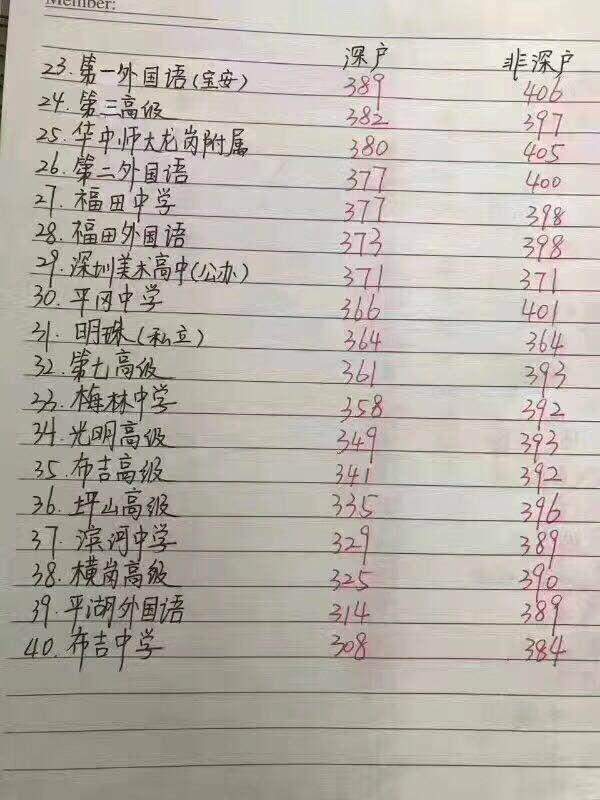 Member:
深户 非深户
23. 第一外国语(宝安) 389 406
24. 第三高级 382 397
25. 华中师大龙岗附属 380 405
26. 第二外国语 377 400
27. 福田中学 377 398
28. 福田外国语 373 398
29. 深圳美术高中(公办) 371 371
30. 平冈中学 366 401
31. 明珠(私立) 364 364
32. 第七高级 361 393
33. 梅林中学 358 392
34. 光明高级 349 393
35. 布吉高级 341 392
36. 坪山高级 335 396
37. 滨河中学 329 389
38. 横岗高级 325 390
39. 平湖外国语 314 389
40. 布吉中学 308 384